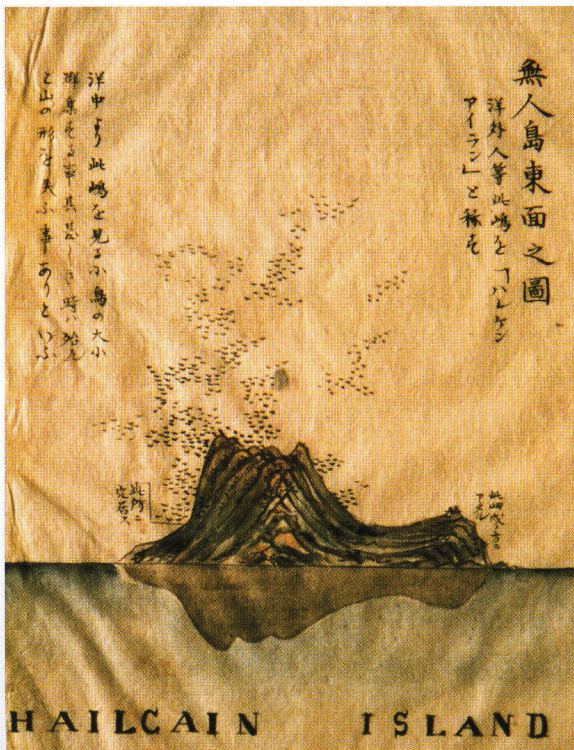 無人島東面之圖
洋外人等此嶋を「ハルケン
アイラン」と称す
洋中より此嶋を見るに鳥の大小
群集する事其甚しき時ハ殆ん
と山の形を失ふ事ありといふ
此所ニ
HAILCAIN ISLAND